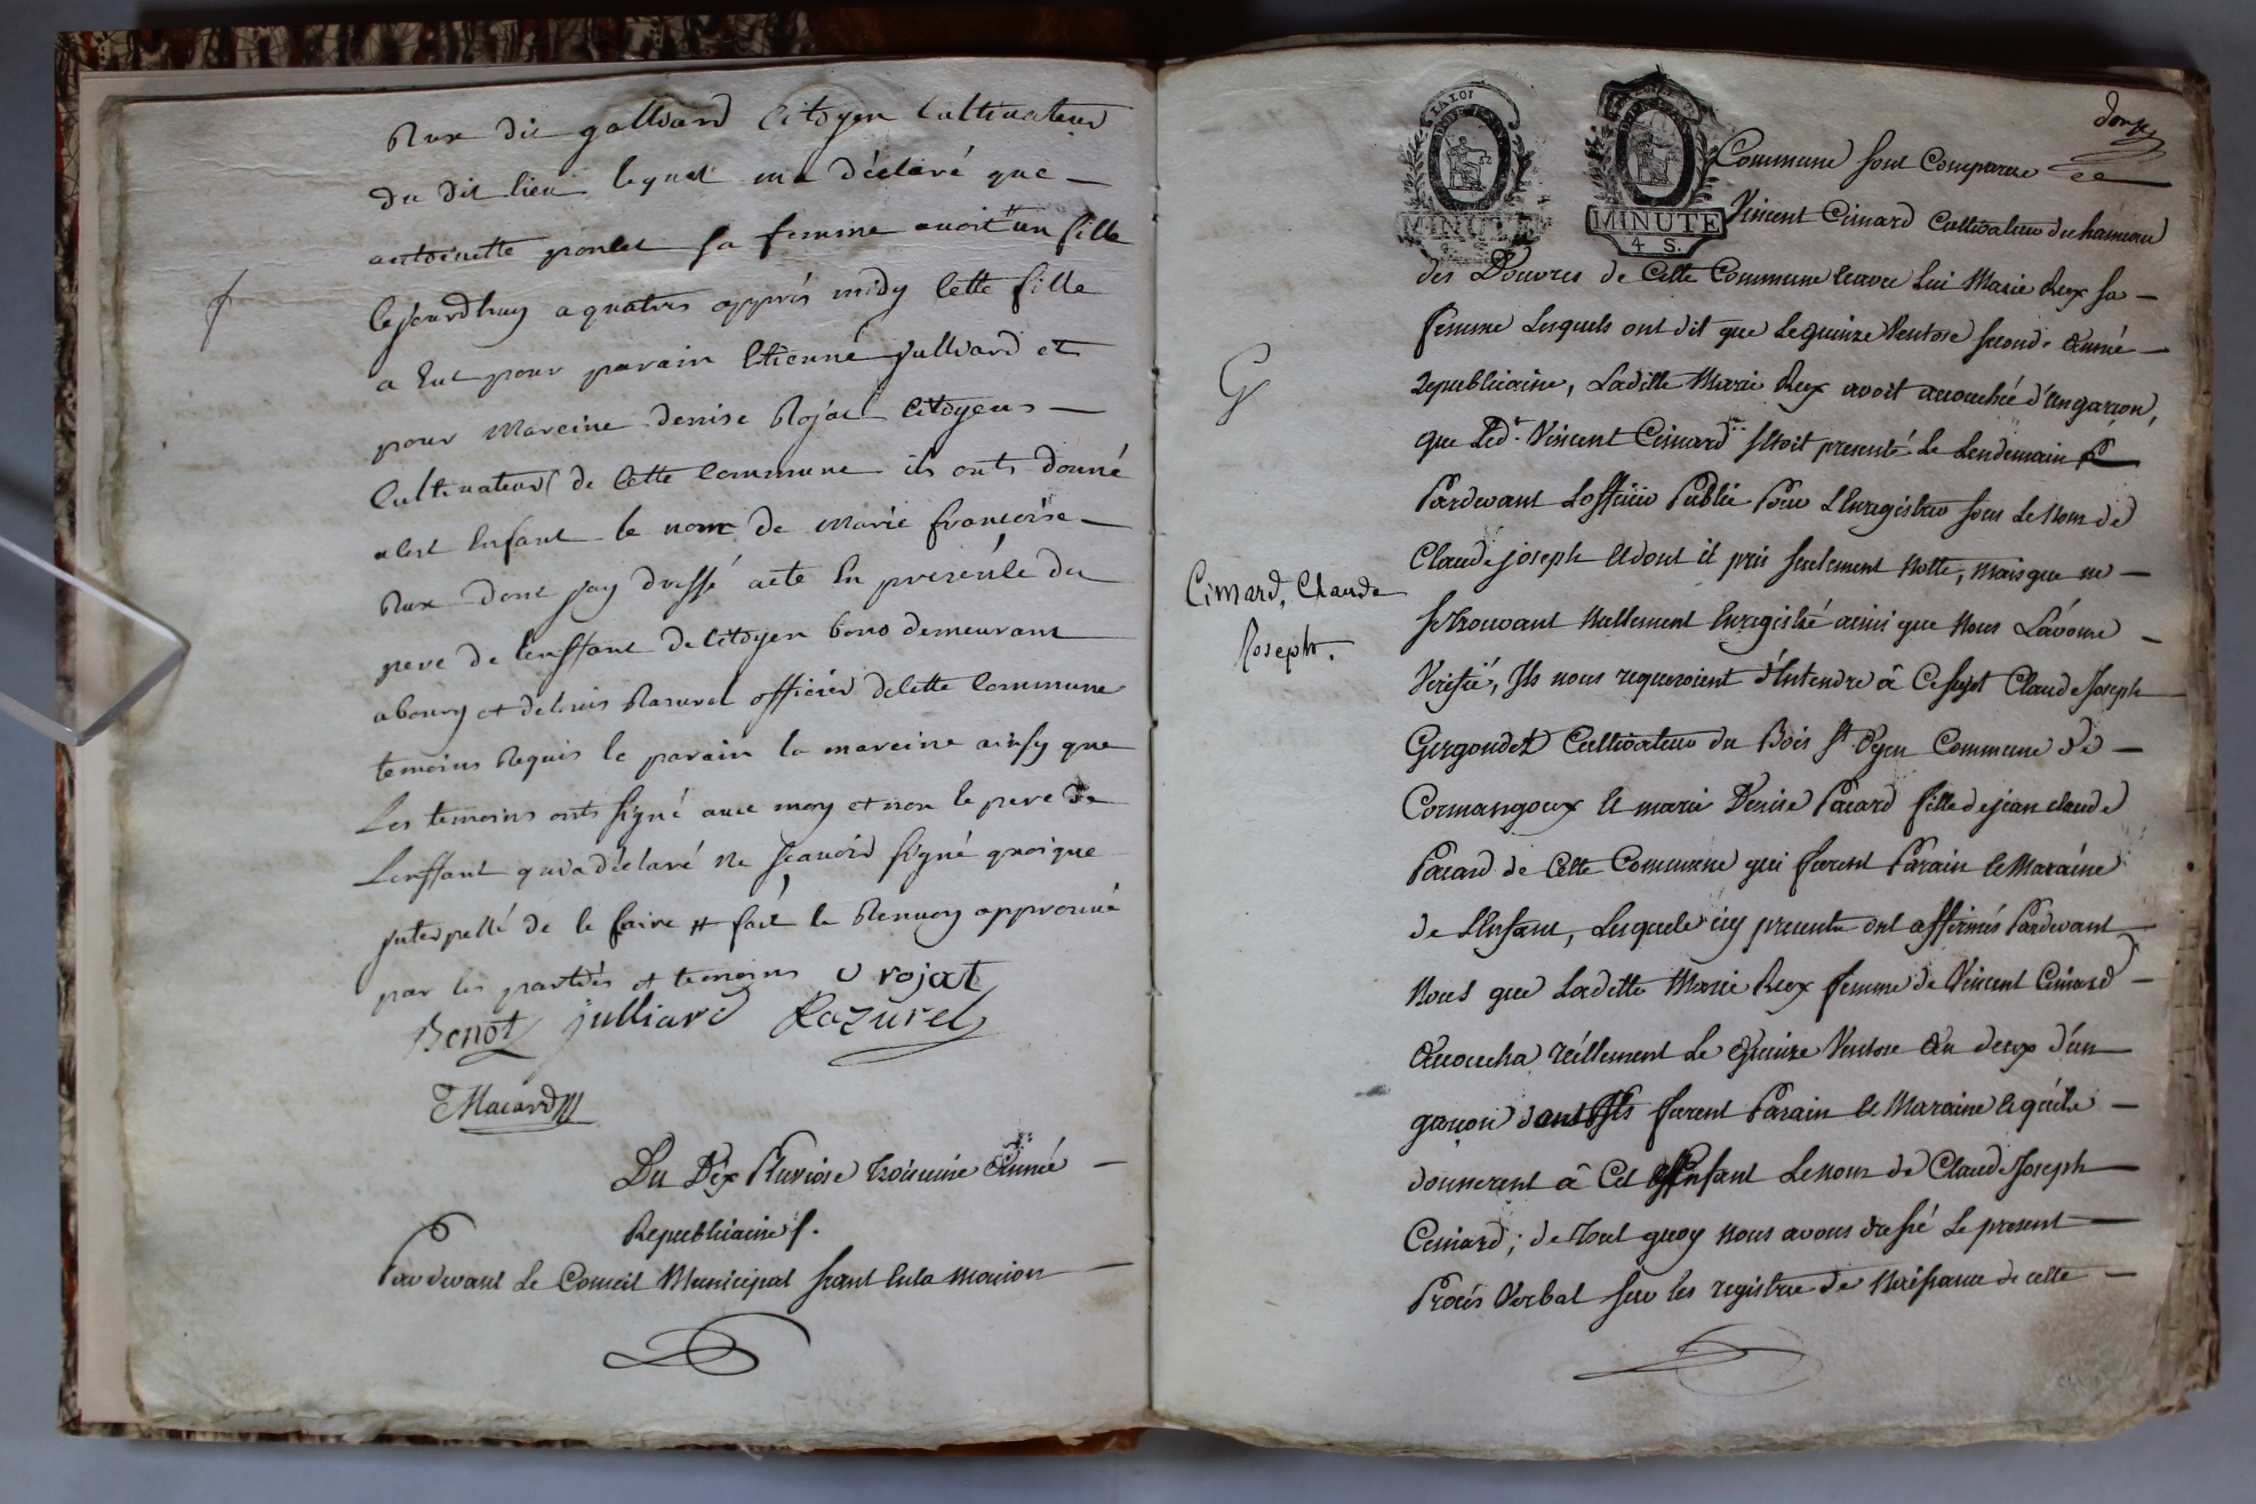 Rux dit galliard Citoyen Cultivateur
du dit lieu lequel ma déclaré que
antoinette poulet sa femme avoit # un fille
Cejourdhuy a quatres apprés midy Cette fille
a Eut pour parain Etienne julliard et
pour Mareine denise Rojat Citoyens
Cultivateurs de Cette Commune ils onts donné
a cest Enfant le nom de marie françoise
Rux dont jay dressé acte En presence du
pere de lenffant de Citoyen bono demeurant
a bourg et de louis Razurel officier de Cette Commune
temoins Requis le parain la mareine ainsy que
Les temoins onts signé avec moy et non le pere de
Lenffant qui a déclaré ne scavoir signé quoique
interpellé de le faire # fait le Renvoy approuvé
par les parties et temoins D rojat
Bonot julliard Razurel
Macard
Du Dix Pluviose troisieme Année
Republicaine.
Pardevant Le Conseil Municipal séant en la maison
LA LOI
MINUTE
MINUTE
4 S.
Commune sont Comparus
Vincent Cimard Cultivateur du hameau
des Douvres de Cette Commune et avec Lui Marie Rux sa
femme Lesquels ont dit que Le quinze Ventose seconde Année
republicaine, Laditte Marie Rux avoit accouchée d'un garçon,
que Led.t Vincent Cimard s'Etoit presenté Le Lendemain
Pardevant L'officier Public Pour L'Enregistrer sous Le nom de
Claude joseph et dont il pris seulement notte, mais que ne
se trouvant nullement Enregistré ainsi que nous L'avons
Verifié, Ils nous requeroient d'Entendre à Ce sujet Claude Joseph
Gergondet Cultivateur du Bois St Oyen Commune de
Cormangoux et marie Denise Pacard fille de jean claude
Pacard de Cette Commune qui furent Parain et Maraine
de L'Enfant, Lesquels icy presents ont affirmés Pardevant
Nous que Laditte Marie Rux femme de Vincent Cimard
Accoucha réellement Le Quinze Ventose An deux d'un
garçon dont Ils furent Parain et Maraine et qu'ils
donnerent à Cet Enfant Le nom de Claude Joseph
Cimard; de tout quoy nous avons dressé Le present
Procès Verbal sur les registres de Naissance de cette
Cimard, Claude
Joseph.